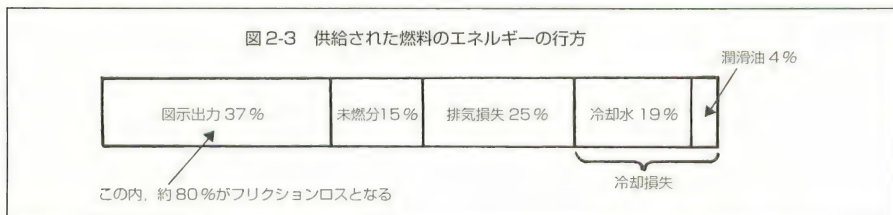 図2-3 供給された燃料のエネルギーの行方
潤滑油 4%
図示出力 37%
未燃分15%
排気損失 25%
冷却水 19%
この内，約80%がフリクションロスとなる
冷却損失